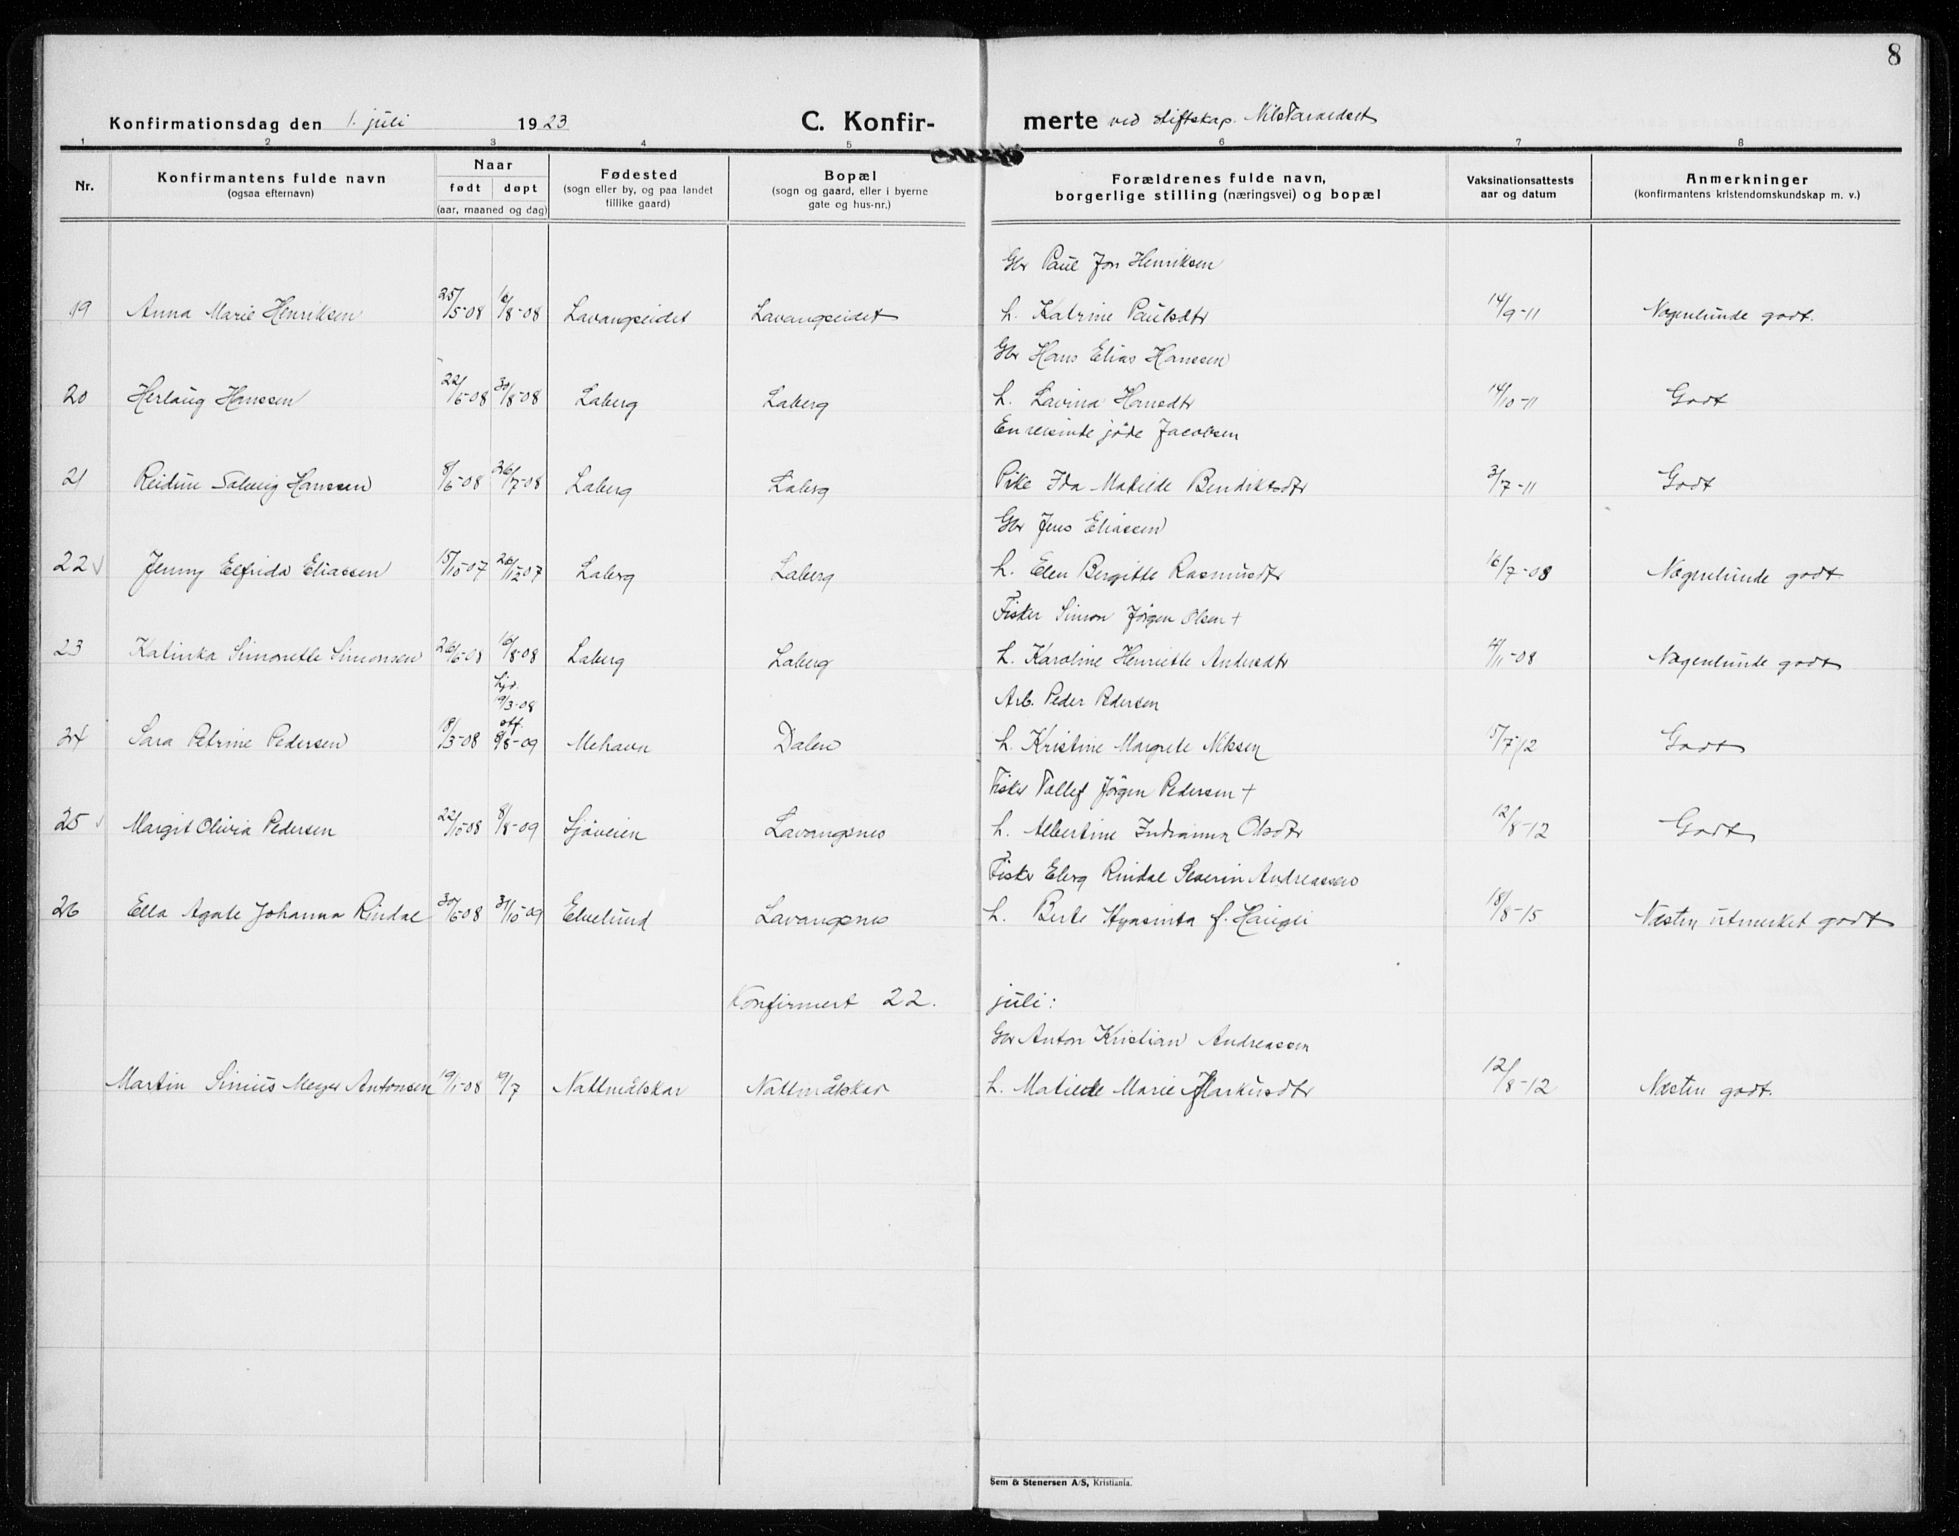 8
Konfirmationsdag den 1. juli 1923 C. Konfir- merte ved stiftskap.
1 2 3 4 5 6 7 8
Nr. Konfirmantens fulde navn (ogsaa efternavn) Naar født døpt (aar, maaned og dag) Fødested (sogn eller by, og paa landet tillike gaard) Bopæl (sogn og gaard, eller i byerne gate og hus-nr.) Forældrenes fulde navn, borgerlige stilling (næringsvei) og bopæl Vaksinationsattests aar og datum Anmerkninger (konfirmantens kristendomskundskap m. v.)
Gbr Paul Jon Henriksen
19 Anna Marie Henriksen 25/5-08 16/8-08 Lavangseidet Lavangseidet h. Katrine Paulsdtr 14/9-11 Nogenlunde godt.
Gbr Hans Elias Hanssen
20 Herlaug Hanssen 22/6-08 30/8-08 Laberg Laberg h. Lavina Hansdtr 14/10-11 Godt
En reisende jøde Jacobsen
21 Reidun Solveig Hanssen 8/6-08 26/7-08 Laberg Laberg Pike Ida Matilde Bendiktsdtr 3/7-11 Godt
Gbr Jens Eliassen
22 Jenny Elfrida Eliassen 15/10-07 26/12-07 Laberg Laberg h. Elen Bergitte Rasmusdtr 16/7-08 Nogenlunde godt
Fisker Simon Jørgen Olsen +
23 Katinka Simonette Simonsen 26/6-08 16/8-08 Laberg Laberg h. Karoline Henriette Andersdtr 4/11-08 Nogenlunde godt
Hjd. 19/3-08 Arb. Peder Pedersen
off.
24 Sara Petrine Pedersen 18/3-08 8/8-09 Mehavn Dalen h. Kristine Margrete Nilssen 15/7-12 Godt
Fisker Tollef Jørgen Pedersen +
25 Margit Olivia Pedersen 22/10-08 8/8-09 Sjøveien Lavangsnes h. Albertine Indianna Olsdtr 12/8-12 Godt
Fisker Eberg Rindal Severin Andreassen
26 Ella Agate Johanna Rindal 30/6-08 31/10-09 Elvelund Lavangsnes h. Berte Hyasinta f. Haugli 18/8-15 Næsten utmerket godt
Konfirmert 22. juli:
Gbr Anton Kristian Andreassen
Martin Sinius Meyer Antonsen 19/1-08 19/7 Nattmålskar Nattmålskar h. Matilde Marie Markusdtr 12/8-12 Næsten godt.
Sem & Stenersen A/S, Kristiania.